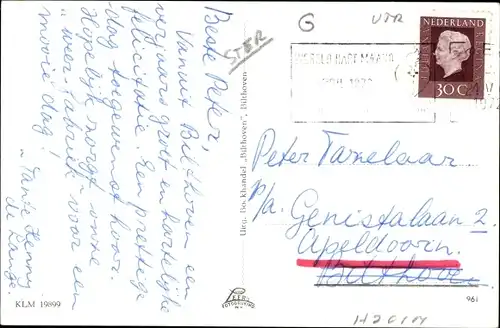 Beste Peter,
Vanuit Bilthoven een
verjaars groet en hartelijke
felicitatie. Een prettige
dag toegewenst hoor.
Hopelijk zorgt onze
"weer-fabriek" voor een
mooie dag!
"Tante Henny
de Lange.
KLM 19899
STER
Uitg. Boekhandel "Bilthoven", Bilthoven
G
UTR
NEDERLAND
30 C
1972
Peter Tanelaar
p/a. Genistalaan 2.
Apeldoorn.
Bilthoven
FOTODRUKKERIJ
961